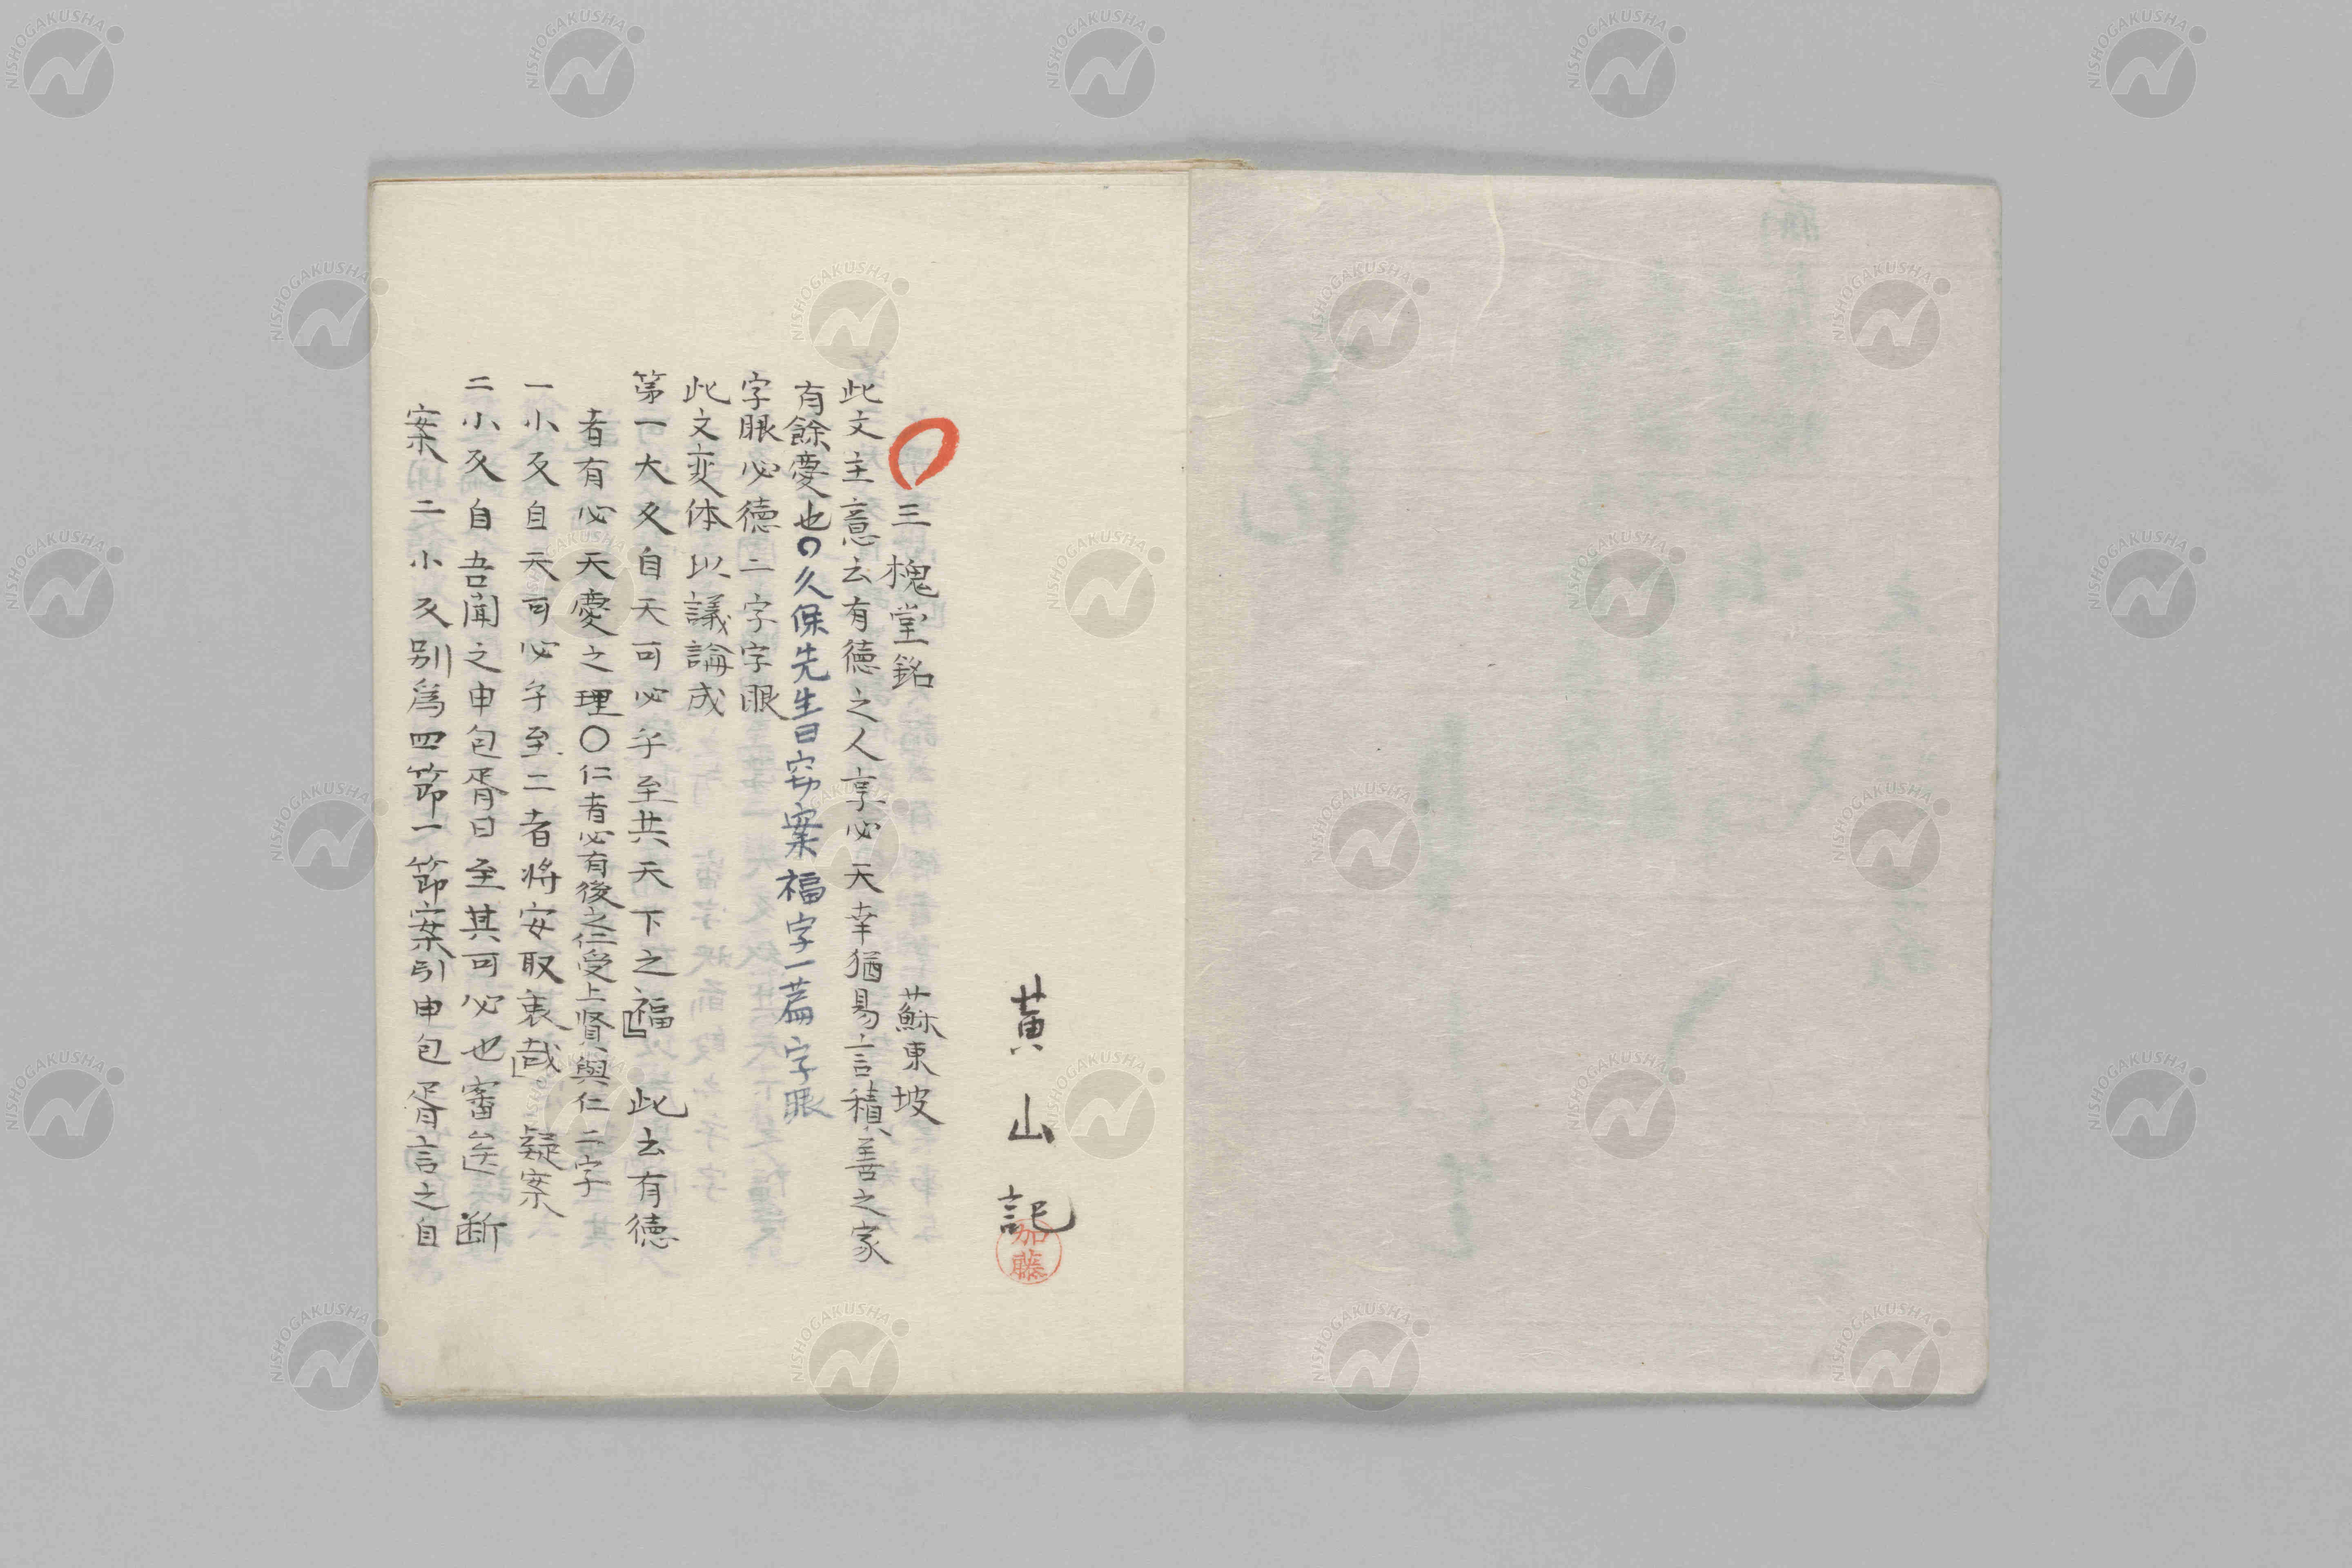 黄山記
加藤
三槐堂銘 蘇東坡
此文主意云有徳之人享必天幸猶易言積善之家
有餘慶也〇久保先生曰窃案福字一篇字眼
字眼必徳二字字眼
此文変体以議論成
第一大叉自天可必乎至共天下之福』此云有徳
者有必天慶之理〇仁者必有後之仁受上賢與仁二字
一小叉自天可必乎至二者将安取衷哉』疑案
二小叉自吾聞之申包胥曰至其可必也審矣 断
案 二小叉別為四節一節案引申包胥言之自
NISHOGAKUSHA